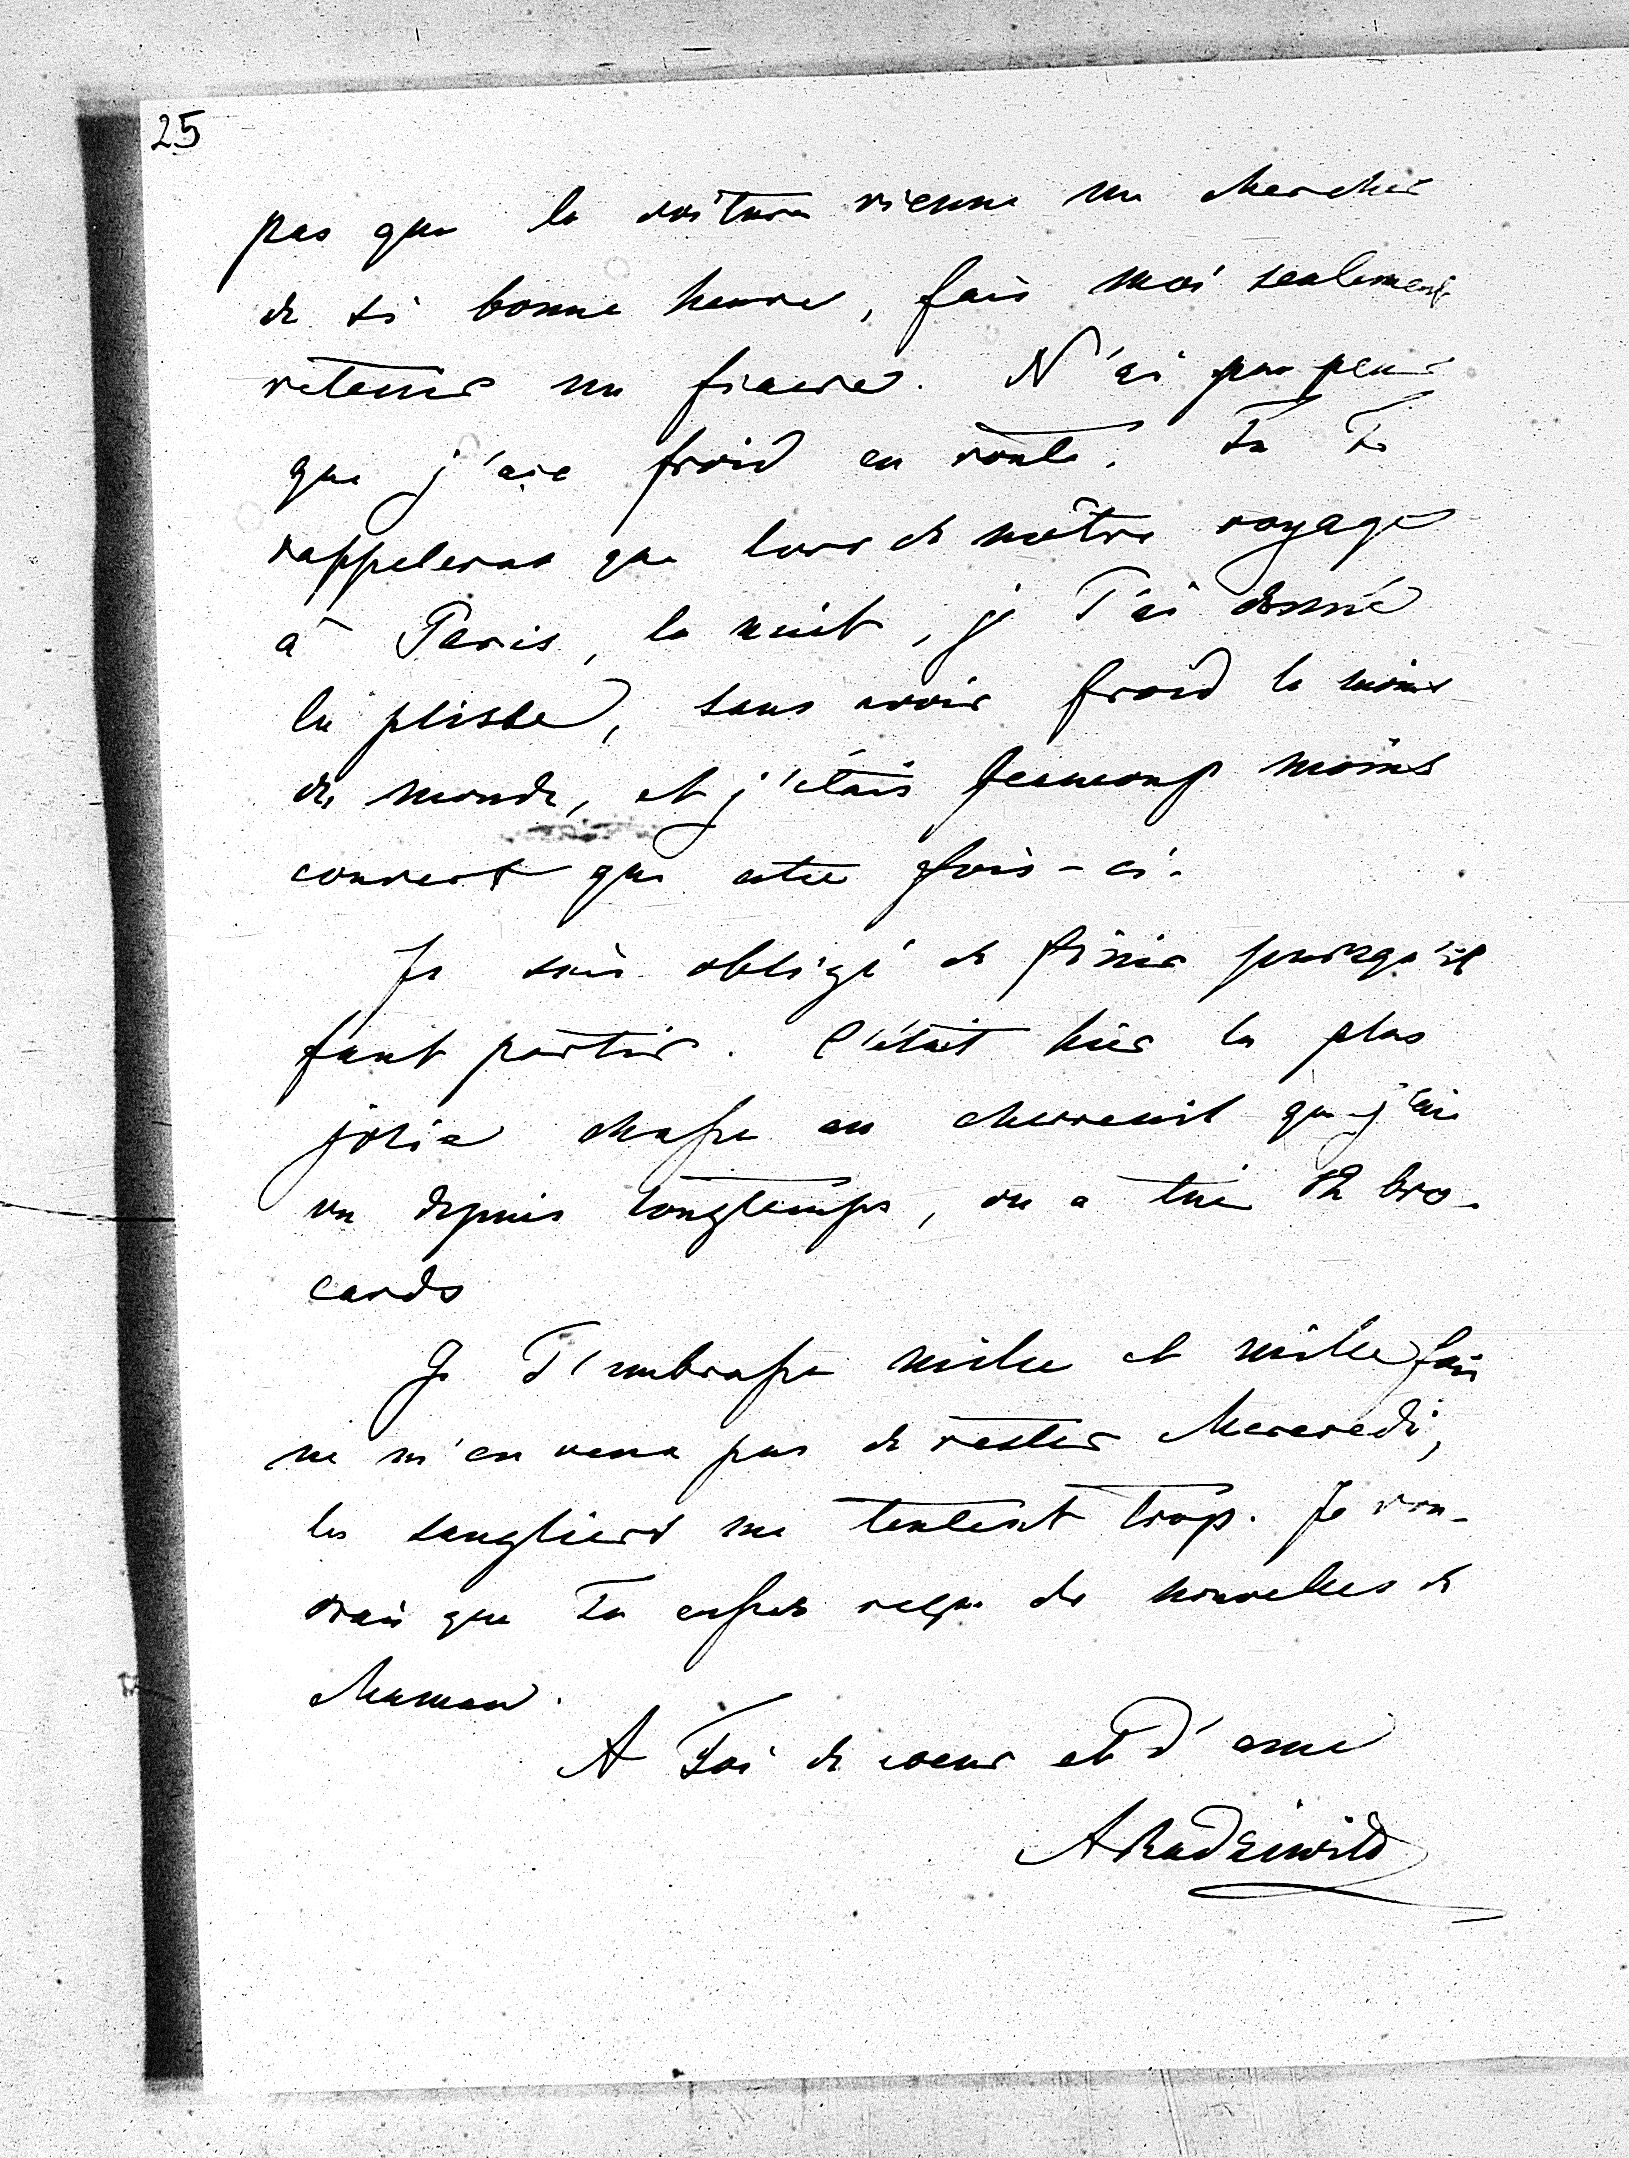 25
pas que la voiture vienne me chercher
de si bonne heure, fais moi seulement
retenir un fiacre. N'ai pas peur
que j'aie froid en route. Tu Te
rappeleras que lors de nôtre voyage
à Paris, la nuit, je T'ai donné
la plisse, sans avoir froid le moins
du monde, et j'étais beaucoup moins
couvert que cette fois-ci.
Je suis obligé de finir puisqu'il
faut partir. C'était hier la plus
jolie chasse au chevreuil que j'aie
vu depuis longtemps, on a tué bro-
cards
Je T'embrasse mille et mille fois
ne m'en veux pas de rester Mercredi,
les sangliers me tentent trop. Je vou-
drais que Tu eusses reçu des nouvelles de
Maman.
A Toi de coeur et d'ame
ARadziwill